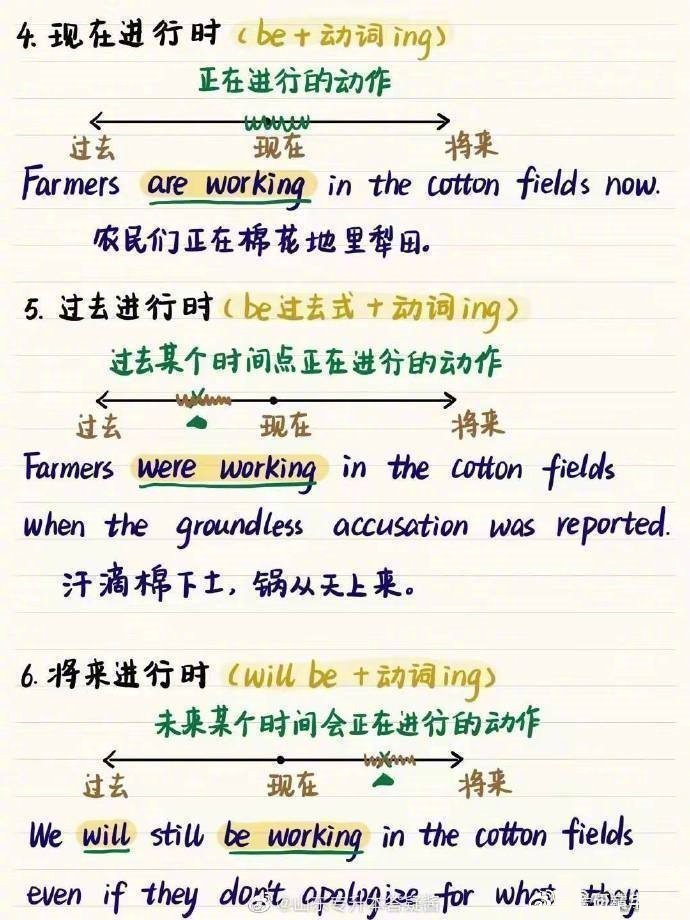 4. 现在进行时（be + 动词 ing）
正在进行的动作
过去 现在 将来
Farmers are working in the cotton fields now.
农民们正在棉花地里犁田。
5. 过去进行时（be过去式 + 动词ing）
过去某个时间点正在进行的动作
过去 现在 将来
Farmers were working in the cotton fields
when the groundless accusation was reported.
汗滴棉下土，锅从天上来。
6. 将来进行时（will be + 动词ing）
未来某个时间会正在进行的动作
过去 现在 将来
We will still be working in the cotton fields
even if they don't apologize for what they
@山东专升本答疑酱